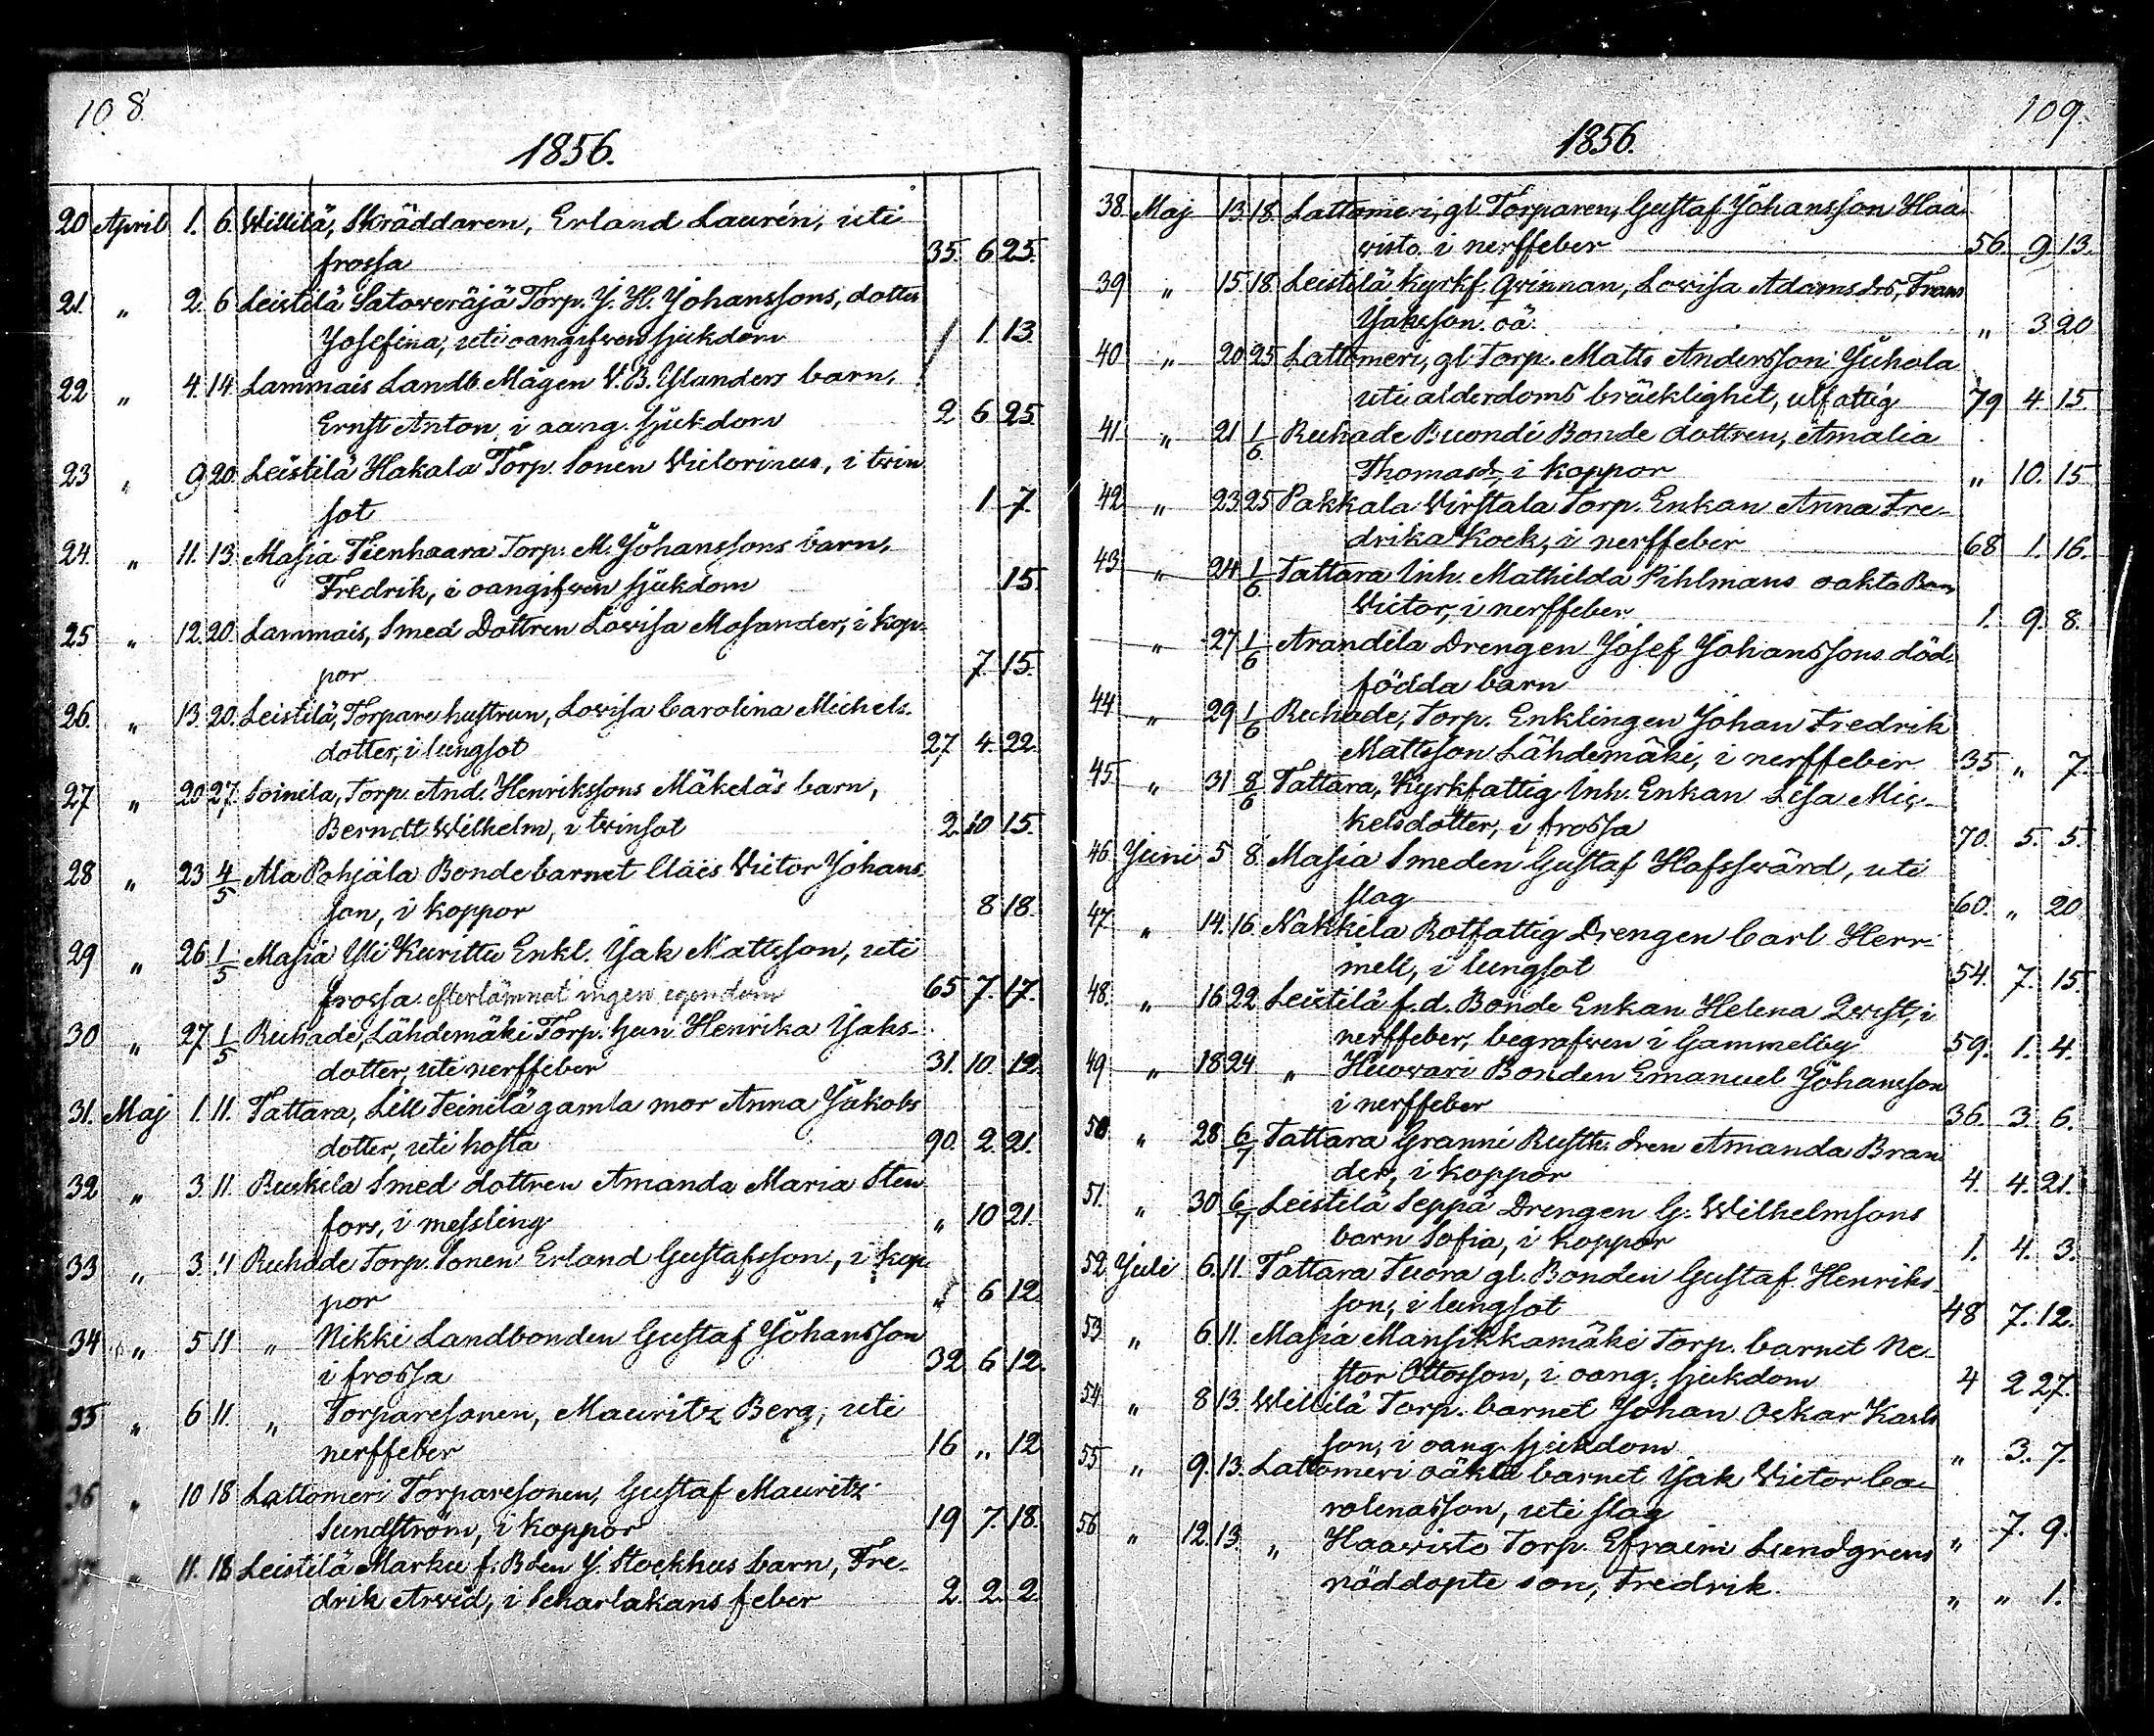 108
1856.
20 April 1. 6. Willilä, Skräddaren, Erland Laurén, uti
frossa 35. 6 25.
21. " 2. 6 Leistilä Satoweräjä Torp. J. H. Johanssons, dotter
Josefina, uti oangifwen sjukdom 1 1 13.
22 " 4. 14. Lammais Landb. Mågen V. B. Ylanders barn,
Ernst Anton, i oang. sjukdom 2 6 25.
23 " 9 20. Leistilä Hakala Torp. Sonen Victorinus, i twin
sot 1 7.
24. " 11. 13. Masia Tienhaara Torp. M. Johanssons barn,
Fredrik, i oangifwen sjukdom 15.
25 " 12. 20. Lammais, Smed Dottren Lowisa Mosander, i kop-
por 7. 15.
26. " 13. 20. Leistilä, Torpare hustrun, Lowisa Carolina Michels-
dotter, i lungsot 27 4. 22.
27 " 20 27. Soinila, Torp. And. Henrikssons Mäkeläs barn,
Berndt Wilhelm, i twinsot 2 10 15.
28 " 23 4/5 Ala Pohjala Bonde barnet Claës Victor Johans
son, i koppor 8 18.
29 " 26 1/5 Masia Yli Kurittu Enkl. Jak Mattsson, uti
frossa efterlämnat ingen egendom 65 7. 17.
30 " 27 1/5 Ruhade, Lähdemäki Torp. hun Henrika Jaks-
dotter, uti nerffeber 31. 10 12.
31. Maj 1. 11. Tattara, Lill Teinilä gamla mor Anna Jakobs
dotter, uti hosta 90. 2. 21.
32 " 3 11. Ruskila Smed dottren Amanda Maria Sten
fors, i messling " 10 21.
33 " 3. 11 Ruhade Torp. Sonen Erland Gustafsson, i kop-
por " 6 12.
34 " 5 11 " Nikki Landbonden Gustaf Johansson
i frossa 32 6 12.
35 " 6 11 " Torparesonen, Mauritz Berg, uti
nerffeber 16 " 12
36 " 10 18 Lattomeri Torparesonen, Gustaf Mauritz
Sundström, i koppor 19 7. 18.
37 " 11. 18 Leistilä Marku f. Bden J. Stockhus barn, Fre-
drik Arvid, i Scharlakans feber 2. 2. 2.
109.
1856.
38. Maj 13 18. Lattomeri, gl. Torparen, Gustaf Johansson Haa-
wisto. i nerffeber 56. 9. 13.
39 " 15 18. Leistilä Kyrkf. Qwinnan, Lowisa Adams drs, Frans
Jaksson. oä. " 3 20
40 " 20 25 Lattomeri, gl Torp. Matts Andersson Juhola
uti alderdoms bräcklighet, utfattig 79 4. 15.
41 " 21 1/6 Ruhade Buondi Bonde dottren, Amalia
Thomasdr, i koppor " 10. 15
42 " 23 25 Pakkala Wirstala Torp. Enkan Anna Fre-
drika Kock, i nerffeber 68 1. 16.
43 " 24 1/6 Tattara Inh. Mathilda Pihlmans oakta Barn
Victor, i nerffeber 1. 9. 8.
" 27 1/6 Arandila Drengen Josef Johanssons död-
födda barn
44 " 29 1/6 Ruhade, Torp. Enklingen Johan Fredrik
Mattsson Lähdemäki, i nerffeber 35 " 7
45 " 31 8/6 Tattara, Kyrkfattig Inh. Enkan Lisa Mic-
kelsdotter, i frossa 70. 5. 5.
46 Juni 5 8. Masia Smeden Gustaf Hofsswärd, uti
slag 60. " 20
47 " 14. 16. Nakkila Rotfattig Drengen Carl Herr-
mell, i lungsot 54. 7. 15.
48. " 16 22 Leistilä f.d. Bonde Enkan Helena Qwist, i
nerffeber, begrafwen i Gammelby 59. 1. 4.
49 " 18 24 " Huowari Bonden Emanuel Johansson
i nerffeber 36. 3 6.
50 " 28 6/7 Tattara Granni Rusth. dren Amanda Bran
der, i koppor 4. 4. 21.
51. " 30 6/7 Leistilä Seppä Drengen G. Wilhelmsons
barn Sofia, i koppor 1. 4. 3.
52 Juli 6. 11. Tattara Tuora gl. Bonden Gustaf Henriks-
son, i lungsot 48 7. 12.
53 " 6. 11. Masia Mansikkamäki Torp. barnet Ne-
stor Ottosson, i oang. sjukdom 4 2 27.
54 " 8 13. Willilä Torp. barnet Johan Oskar Karls
son, i oang. sjukdom " 3. 7.
55 " 9. 13. Lattomeri oäkta barnet Jak Victor Ca-
rolinasson, uti slag " 7. 9.
56 " 12. 13 " Haawisto Torp. Efraim Lundgrens
nöddopte son, Fredrik " " 1.